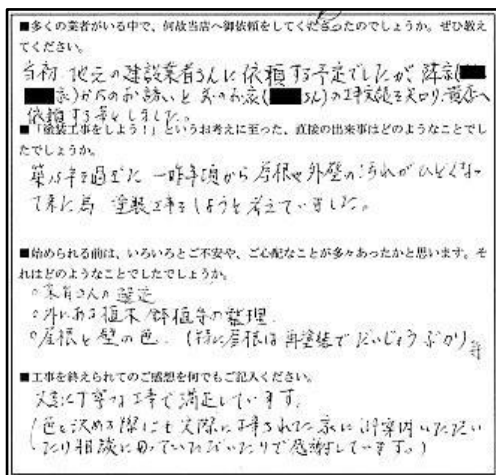 ■多くの業者がいる中で、何故当店へ御依頼をしてくださったのでしょうか。ぜひ教え
てください。
当初 地元の建設業者さんに依頼する予定でしたが、隣家(
家)からのお誘いと のお家( さん)の工事実績を知り、貴店へ
依頼する事としました。
■「塗装工事をしよう！」というお考えに至った、直接の出来事はどのようなことでし
たでしょうか。
築15年を過ぎた 一昨年頃から屋根や外壁の汚れがひどくなっ
て来た為 塗装工事をしようと考えていました。
■始められる前は、いろいろとご不安や、ご心配なことが多々あったかと思います。そ
れはどのようなことでしたでしょうか。
○業者さんの選定
○外にある植木 鉢植等の整理
○屋根と壁の色 (特に屋根は再塗装でだいじょうぶか)等
■工事を終えられてのご感想を何でもご記入ください。
丁寧な工事で満足しています。
(色を決める際にも実際に工事された家に御案内いただい
たり相談に のっていただいたりで感謝しています。)